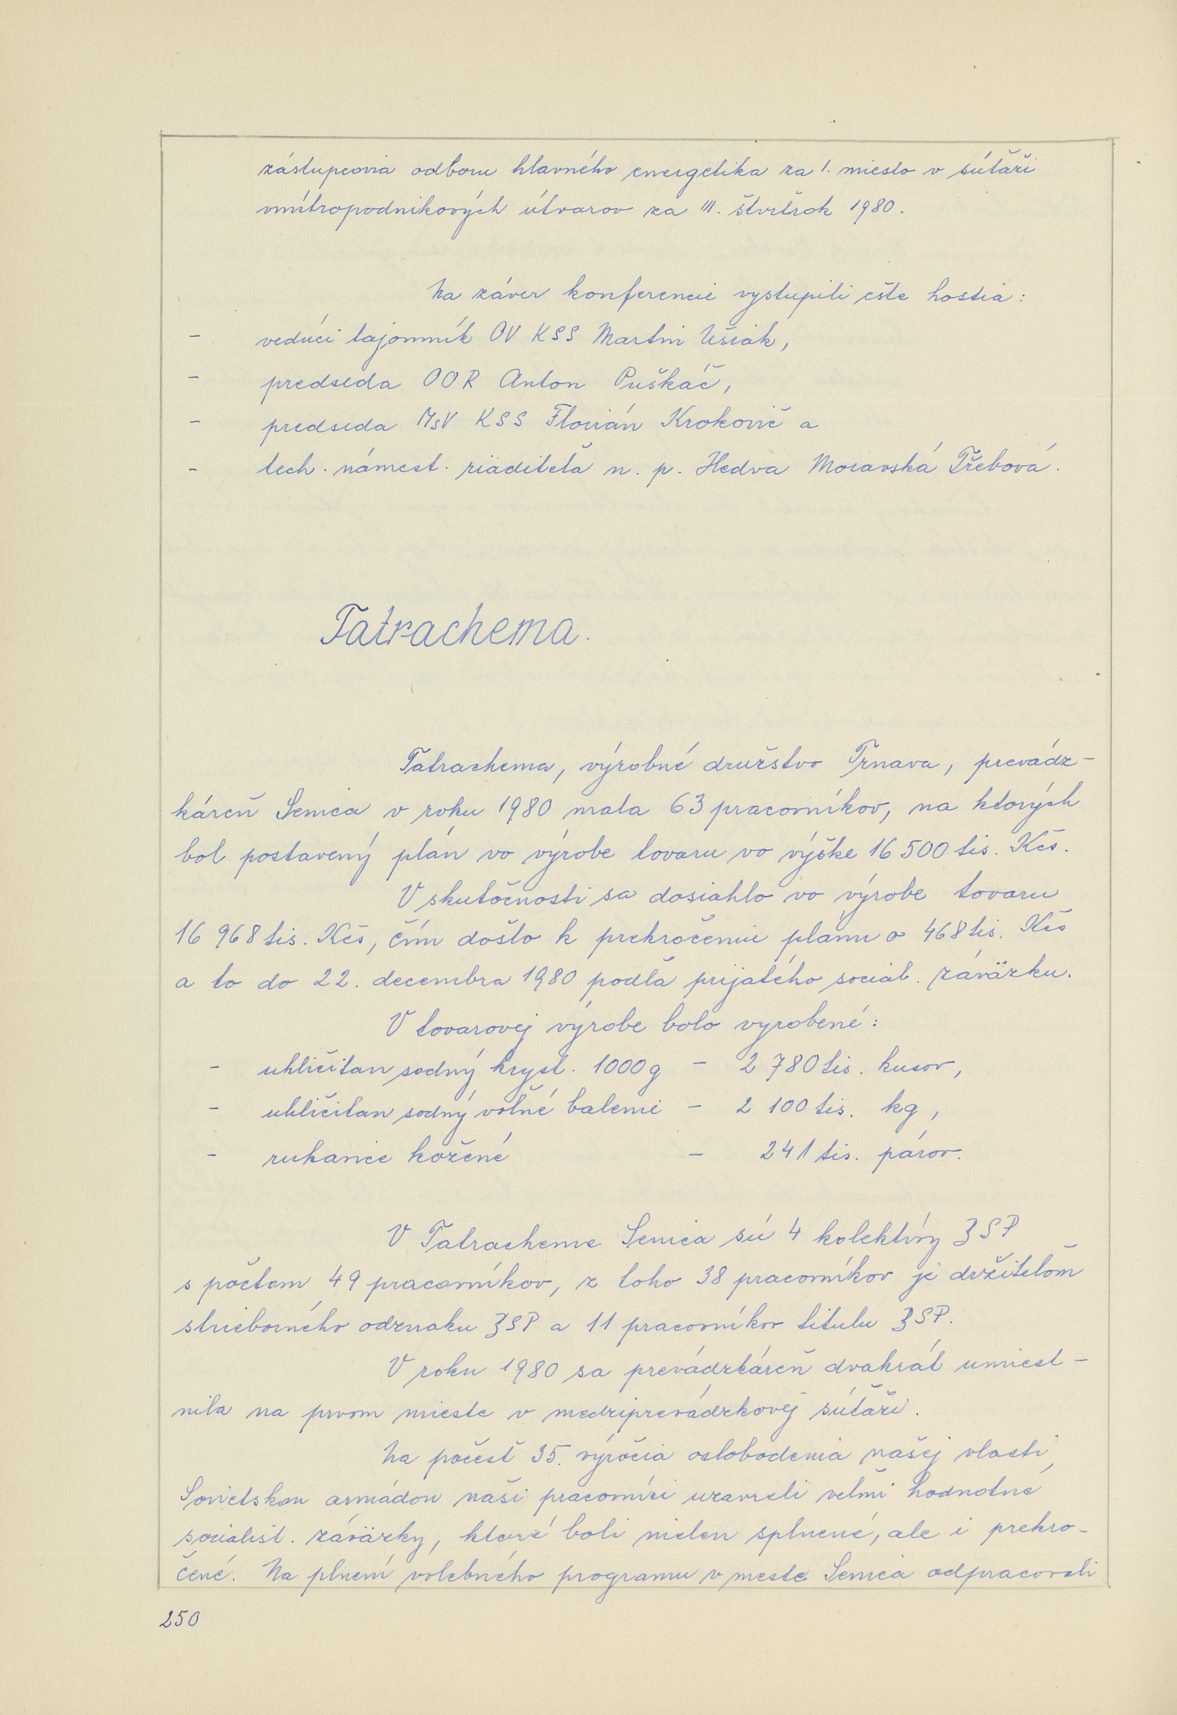 zástupcovia odboru hlavného energetika za I. miesto v súťaži
vnútropodnikových útvarov za III. štvrťrok 1980.
Na záver konferencie vystúpili ešte hostia:
- vedúci tajomník OV KSS Martin Ušiak,
- predseda OOR Anton Puškáč,
- predseda MsV KSS Florián Krokovič a
- tech. námest. riaditeľa n. p. Hedva Moravská Třebová.
Tatrachema.
Tatrachema, výrobné družstvo Trnava, prevádz-
káreň Senica v roku 1980 mala 63 pracovníkov, na ktorých
bol postavený plán vo výrobe tovaru vo výške 16 500 tis. Kčs.
V skutočnosti sa dosiahlo vo výrobe tovaru
16 968 tis. Kčs, čím došlo k prekročeniu plánu o 468 tis. Kčs
a to do 22. decembra 1980 podľa prijatého sociál. záväzku.
V tovarovej výrobe bolo vyrobené:
- uhličitan sodný kryšt. 1000g - 2 780 tis. kusov,
- uhličitan sodný voľné balenie - 2 100 tis. kg,
- rukavice kožené - 241 tis. párov.
V Tatracheme Senica sú 4 kolektívy BSP
s počtom 49 pracovníkov, z toho 38 pracovníkov je držiteľom
strieborného odznaku BSP a 11 pracovníkov titulu BSP.
V roku 1980 sa prevádzkáreň dvakrát umiest-
nila na prvom mieste v medziprevádzkovej súťaži.
Na počesť 35. výročia oslobodenia našej vlasti
Sovietskou armádou naši pracovníci uzavreli veľmi hodnotné
socialist. záväzky, ktoré boli nielen splnené, ale i prekro-
čené. Na plnení volebného programu v meste Senica odpracovali
250